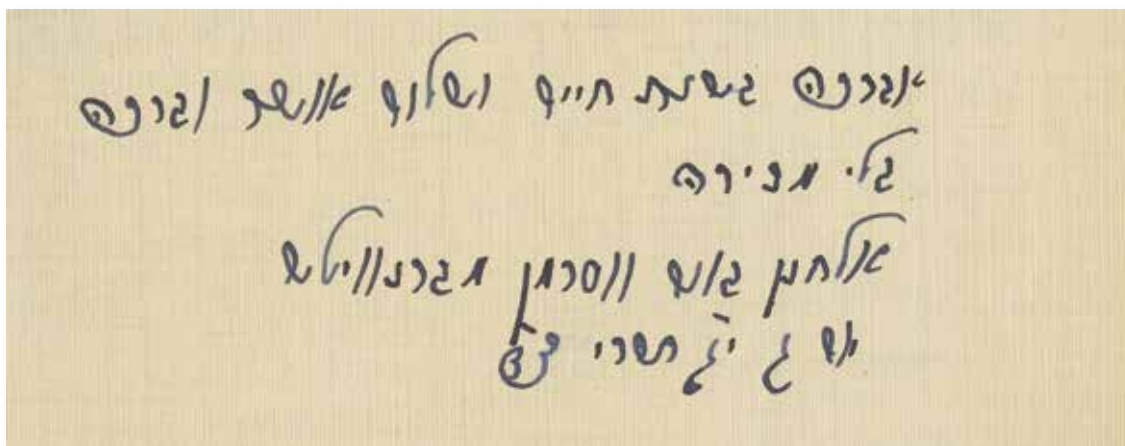 אברכה בשנת חיים ושלום אושר וברכה
בלי מצירה
אלחנן בונם ווסרמן מברנוויטש
יום ג י״ג תשרי